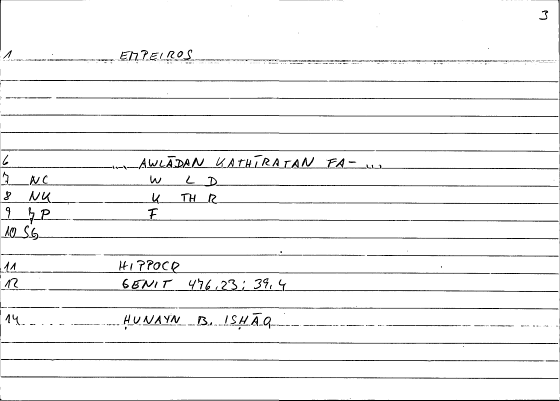 3
1 EMPEIROS
6 ... AWLĀDAN KATHĪRATAN FA- ...
7 NC W L D
8 NK K TH R
9 JP F
10 SG
11 HIPPOCR
12 GENIT 476,23; 39,4
14 ḤUNAYN B. ISḤĀQ